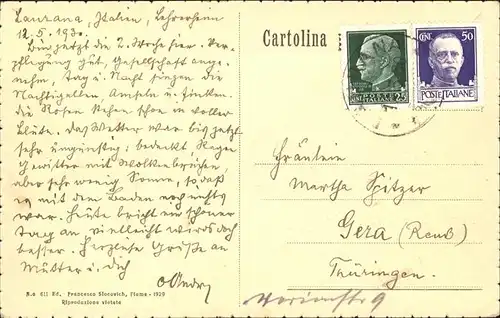 Laurana, Italien, Lehrerheim
12.5.1930.
Bin jetzt die 2. Woche hier. Ver-
pflegung gut, Gesellschaft ange-
nehm, Tag u. Nacht singen die
Nachtigallen, Amseln u. Finken.
die Rosen stehen schon in voller
Blüte. das Wetter war bis jetzt
sehr ungünstig: bedeckt, Regen
Gewitter mit Wolkenbrüchen,
aber sehr wenig Sonne, so daß
es mit dem Baden noch nichts
war. Heute bricht ein schöner
Tag an vielleicht wirds doch
besser. Herzliche Grüße an
Mutter u. dich
Cartolina
CENT. 50
POSTE ITALIANE
POSTE ITALIANE 25
Fräulein
Martha Spitzer
Gera (Reuß)
Thüringen.
9
611 Ed. Francesco Slocovich, Fiume - 1929
Riproduzione vietata